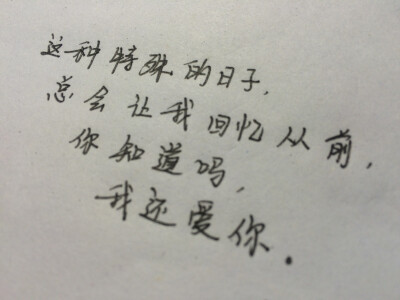 这种特殊的日子，
总会让我回忆从前，
你知道吗，
我还爱你.